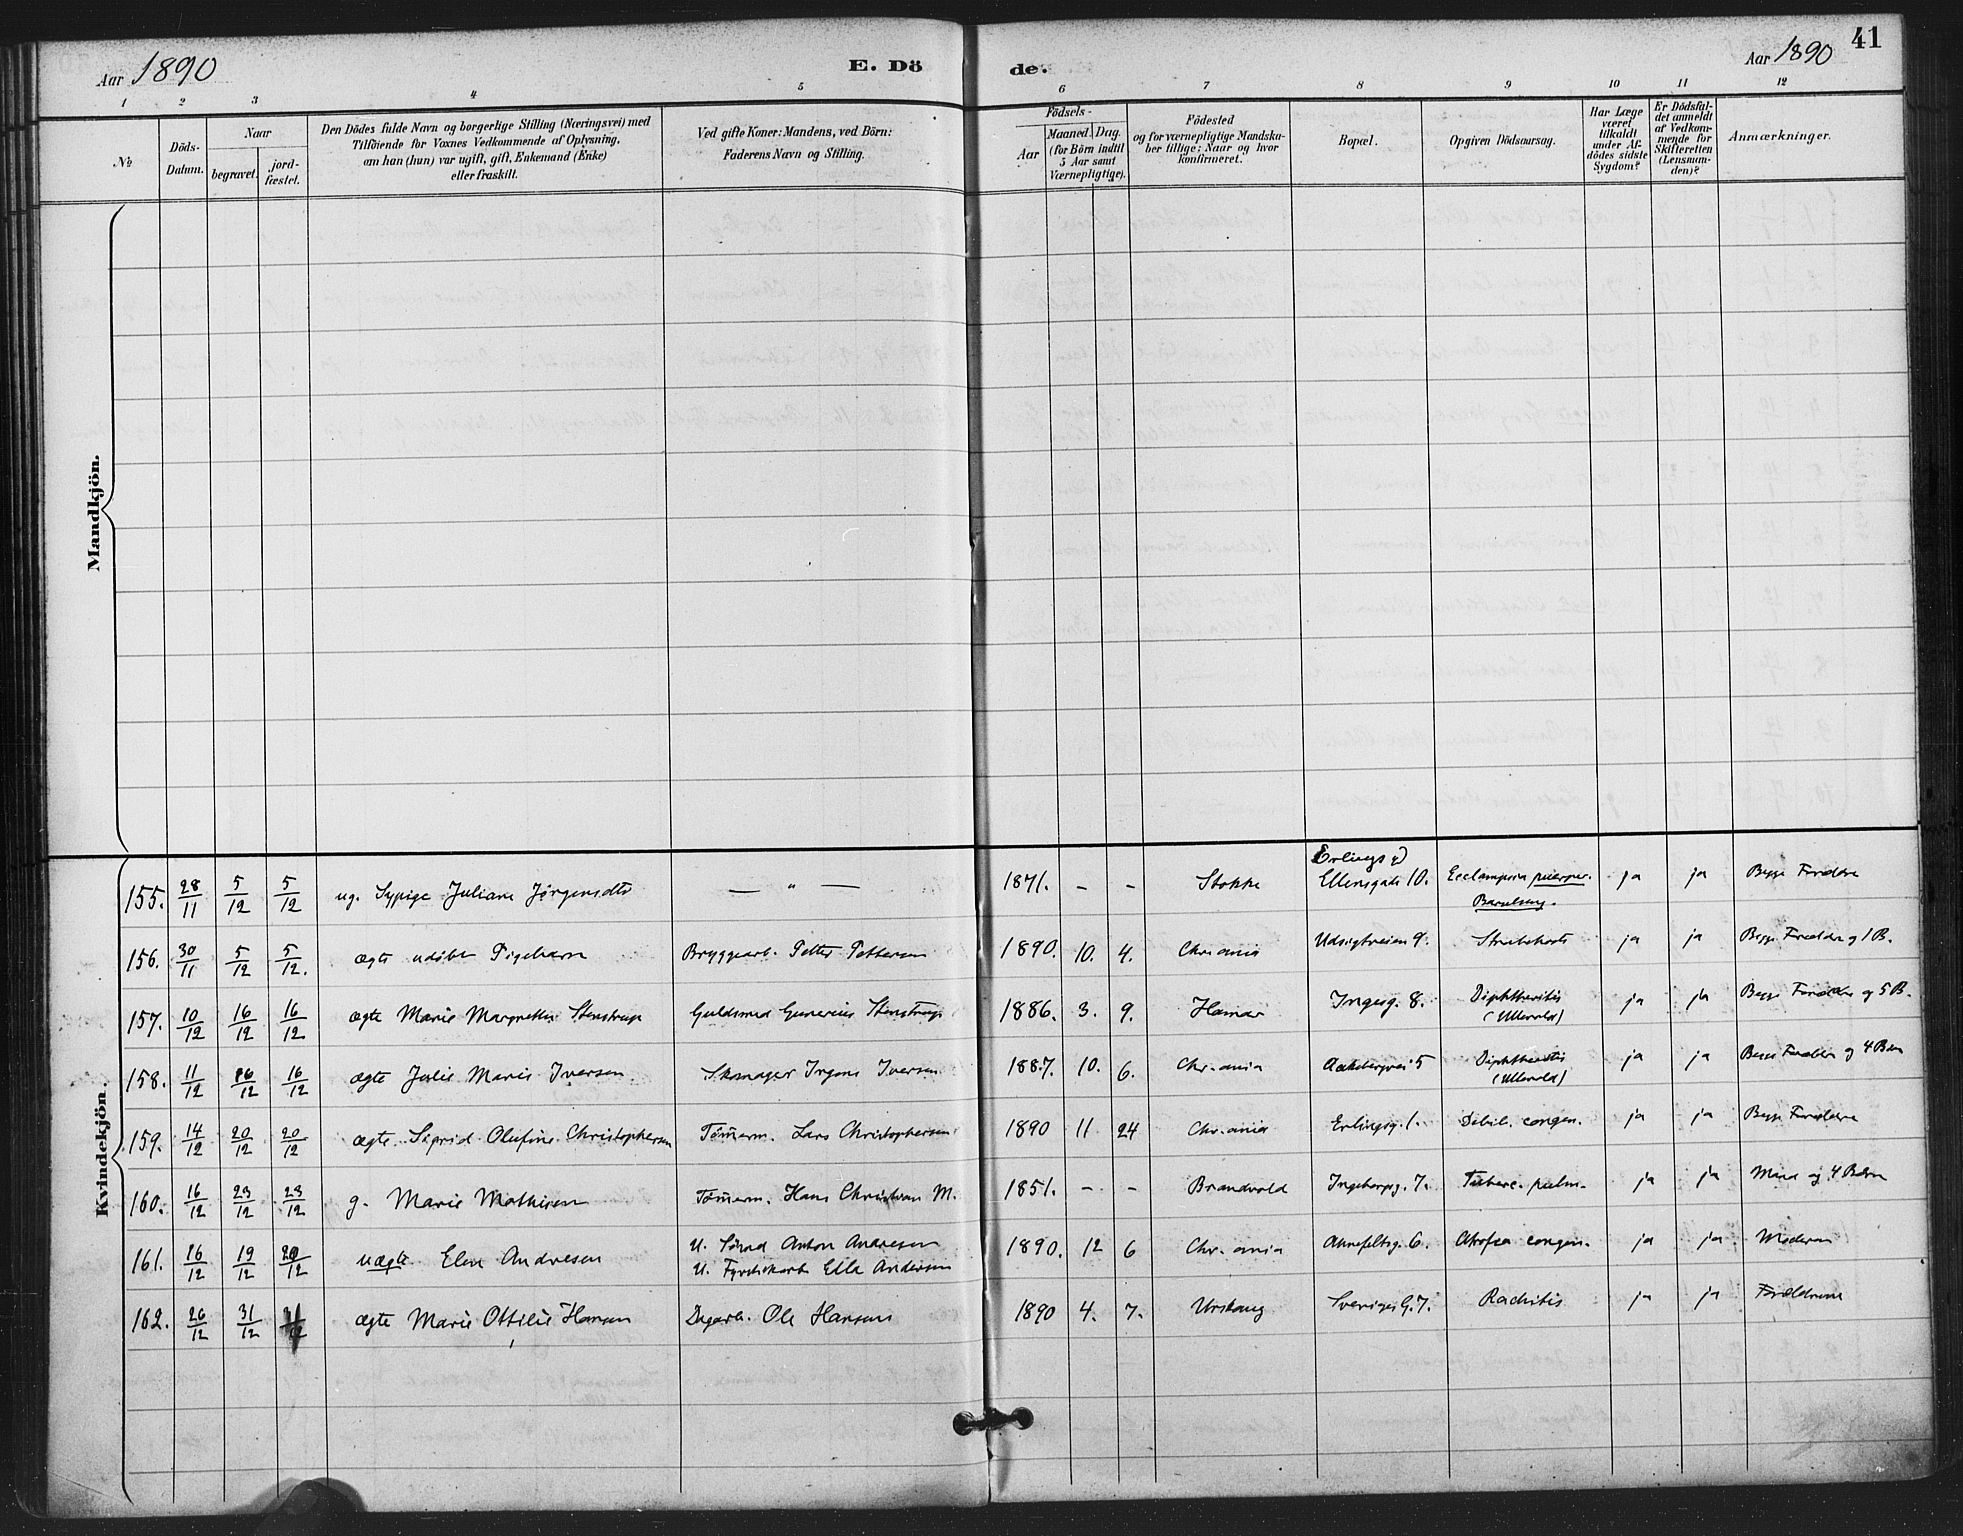 Aar 1890
E. Dö
de.
Aar 1890
41
1 2 3 4 5 6 7 8 9 10 11 12
No
Döds-
Datum.
Naar
begravet.
jord-
fæstet.
Den Dödes fulde Navn og borgerlige Stilling (Næringsvei) med
Tilföiende for Voxnes Vedkommende af Oplysning,
om han (hun) var ugift, gift, Enkemand (Enke)
eller fraskilt.
Ved gifte Koner: Mandens, ved Börn:
Faderens Navn og Stilling.
Födsels-
Aar
Maaned. Dag.
(for Börn indtil
5 Aar samt
Værnepligtige).
Födested
og for værnepligtige Mandska-
ber tillige: Naar og hvor
konfirmeret.
Bopæl.
Opgiven Dödsaarsag.
Har Læge
været
tilkaldt
under Af-
dödes sidste
Sygdom?
Er Dödsfal-
det anmeldt
af Vedkom-
mende for
Skifteretten
(Lensman-
den)?
Anmærkninger.
Mandkjön.
Kvindekjön.
155. 28/11 5/12 5/12 ug. Sypige Juliane Jørgensdtr — " — 1871. - - Stokke Erlingsg Ellensgade 10. Ecclampsia puerper. Barselseng. ja ja Begge Forældre
156. 30/11 5/12 5/12. ægte udøbt Pigebarn Bryggearb. Petter Pettersen 1890. 10. 4. Chr.ania Udsigtveien 9. ja ja Begge Forældre og 1 B.
157. 10/12 16/12 16/12 ægte Marie Margrethe Stenstrup Guldsmed Gunerius Stenstrup 1886. 3. 9. Hamar Ingesg. 8. Diphtheritis (Ullevold) ja ja Begge Forældre og 5 B.
158. 11/12 16/12 16/12 ægte Julie Marie Iversen Skomager Iversen 1887. 10. 6. Chr.ania Aakebergvei 5 Diphtheritis (Ullevold) ja ja Begge Forældre og 4 Børn
159. 14/12 20/12 20/12 ægte Sigrid Olufine Christophersen Tømerm. Lars Christophersen 1890 11 24 Chr.ania Erlingsg. 1. Debil. congen. ja ja Begge Forældre
160. 16/12 23/12 23/12 g. Marie Mathisen Tømerm. Hans Christian M. 1851. - - Brandvold Ingeborgg. 7. Tuberc. pulm. ja ja Mand og 4 Børn
161. 16/12 19/12 20/12 uægte Elen Andresen U. Anton Andresen U. Ella Andersen 1890. 12 6 Chr.ania Ahnefeltsg. 6. Atrofia congen. ja ja Moderen
162. 26/12 31/12 31/12 ægte Marie Ottilie Hansen Dagarb. Ole Hansen 1890 4. 7. Urskoug Sverigesg. 7. Rachitis ja ja Forældrene